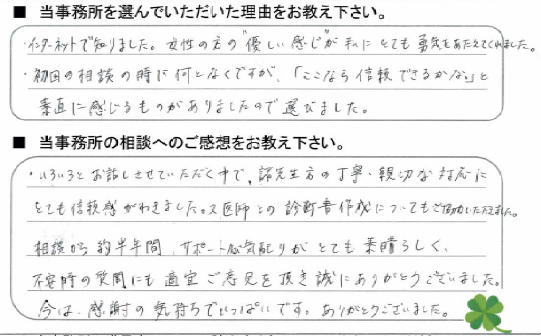 ■ 当事務所を選んでいただいた理由をお教え下さい。
・インターネットで知りました。女性の方の“優しい感じ”が私にとても勇気をあたえてくれました。
・初回の相談の時に何となくですが、「ここなら信頼できるかな」と
素直に感じるものがありましたので選びました。
■ 当事務所の相談へのご感想をお教え下さい。
・いろいろとお話しさせていただく中で、諸先生方の丁寧・親切な対応に
とても信頼感がわきました。又医師との診断書作成についてもご協力いただきました。
相談から約半年間、サポート及気配りがとても素晴らしく、
不安時の質問にも適宜ご意見を頂き誠にありがとうございました。
今は、感謝の気持ちでいっぱいです。ありがとうございました。